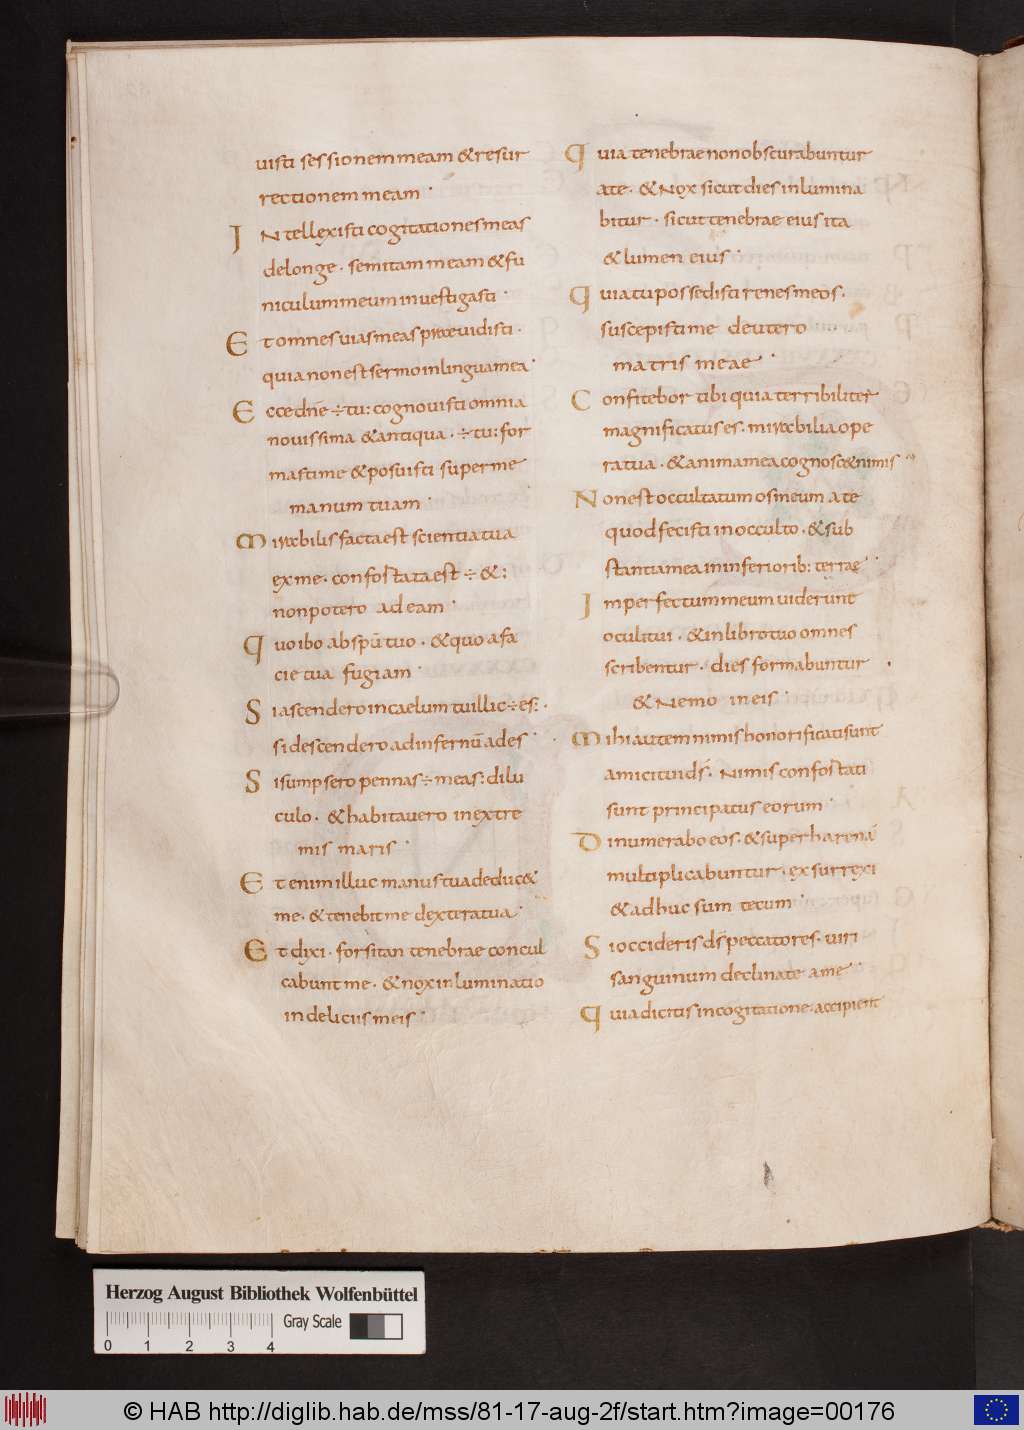 uisti sessionem meam & resur
rectionem meam ·
INtellexisti cogitationes meas
delonge · semitam meam & fu
niculum meum inuestigasti ·
Et omnes uias meas praeuidisti ·
quia non est sermo in lingua mea ·
Ecce dn̄e ÷ tu : cognouisti omnia
nouissima & antiqua · ÷ tu : for
mastime & posuisti super me
manum tuam ·
Mirabilis facta est scientia tua
ex me · confortata est ÷ & :
non potero ad eam ·
Quo ibo ab spū tuo · & quo a fa
cie tua fugiam ·
Si ascendero in caelum tu illic ÷ es : ·
si descendero ad infernū ades ·
Si sumpsero pennas ÷ meas : dilu
culo · & habitauero in extre
mis maris ·
Etenim illuc manus tua deduc&
me · & tenebit me dextera tua ·
Et dixi · forsitan tenebrae concul
cabunt me · & nox inluminatio
in deliciis meis ·
Quia tenebrae non obscurabuntur
a te · & Nox sicut dies inlumina
bitur · sicut tenebrae eius ita
& lumen eius ·
Quia tu possedisti renes meos ·
suscepisti me deutero
matris meae ·
Confitebor tibi quia terribiliter
magnificatus es · mirabilia ope
ra tua · & anima mea cognosc& nimis
Non est occultatum os meum a te
quod fecisti in occulto · & sub
stantia mea in inferiorib: terrae ·
Imperfectum meum uiderunt
oculi tui · & in libro tuo omnes
scribentur · dies formabuntur ·
& Nemo in eis ·
Mihi autem nimis honorificati sunt
amici tui ds̄ · Nimis confortati
sunt principatus eorum ·
Dinumerabo eos · & super harenā
multiplicabuntur · exsurrexi
& adhuc sum tecum ·
Si occideris ds̄ peccatores · uiri
sanguinum declinate a me ·
Quia dicitis in cogitatione · accipient
Herzog August Bibliothek Wolfenbüttel
Gray Scale
0 1 2 3 4
© HAB http://diglib.hab.de/mss/81-17-aug-2f/start.htm?image=00176